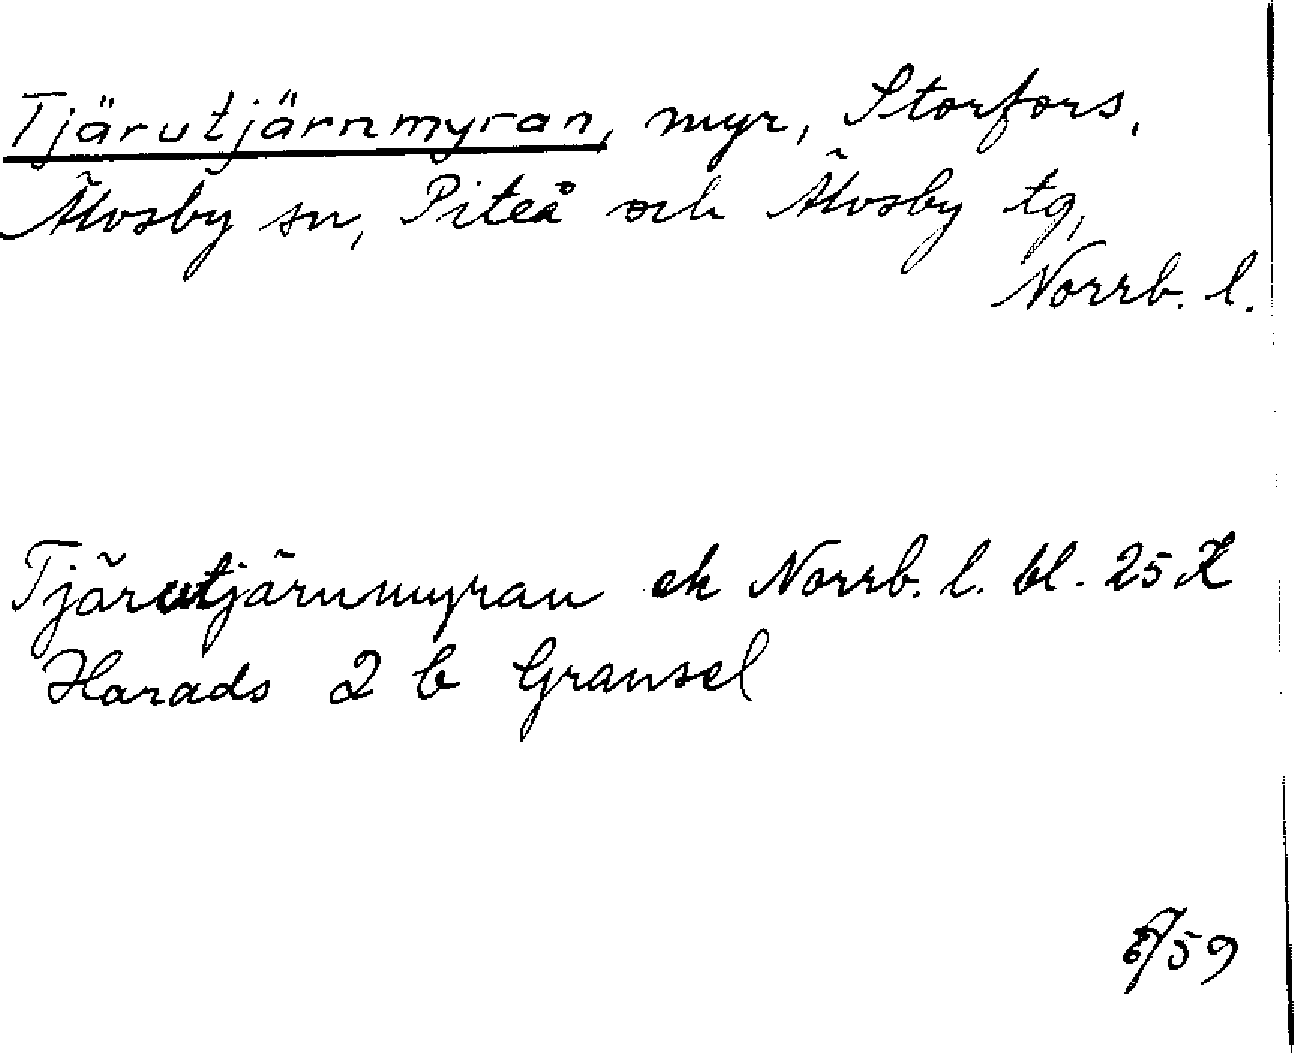 Tjärutjärnmyran, myr, Storfors,
Älvsby sn, Piteå och Älvsby tg,
Norrb. l.
Tjärutjärnmyran ek Norrb. l. bl. 25 K
Harads 2 b Gransel
/59